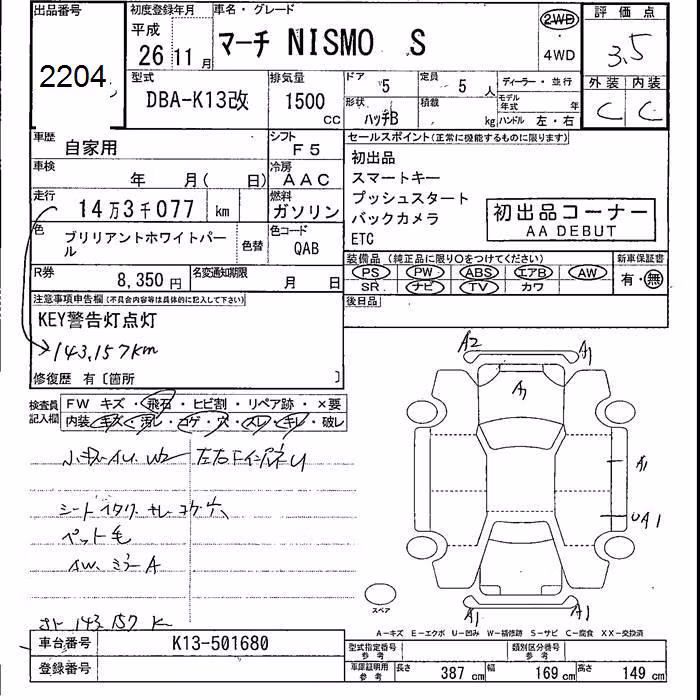 出品番号
2204
初度登録年月
平成
26 11 月
車名・グレード
マーチ NISMO S
2WD
4WD
評価点
3.5
外装 内装
C C
型式
DBA-K13改
排気量
1500
cc
ドア
5
定員
5 人
形状
ハッチB
積載
kg
ディーラー・並行
モデル年式 年
ハンドル 左・右
車歴
自家用
シフト
F5
車検
年 月( 日)
冷房
AAC
走行
14万3千077 km
燃料
ガソリン
色
ブリリアントホワイトパール
色替
色コード
QAB
R券
8,350 円
名変通知期限
月 日
セールスポイント(正常に機能するものに限ります)
初出品
スマートキー
プッシュスタート
バックカメラ
ETC
初出品コーナー
AA DEBUT
装備品(純正品に限り○をつけてください)
PS PW ABS エアB AW
SR ナビ TV カワ
新車保証書
有・無
後日品
注意事項申告欄(不具合内容等は具体的に記入して下さい)
KEY警告灯点灯
143,157km
修復歴 有〔箇所 〕
検査員記入欄
FW キズ・飛石・ヒビ割・リペア跡・×要
内装 キズ・汚レ・コゲ・穴・スレ・キレ・破レ
シート
ペット毛
AW、ミラーA
143,157 K
A2
A1
A1
A1
UA1
A1
A1
スペア
A-キズ E-エクボ U-凹み W-補修跡 S-サビ C-腐食 XX-交換済
車台番号
K13-501680
登録番号
型式指定番号
参考
類別区分番号
参考
車庫証明用
参考
長さ 387 cm 幅 169 cm 高さ 149 cm